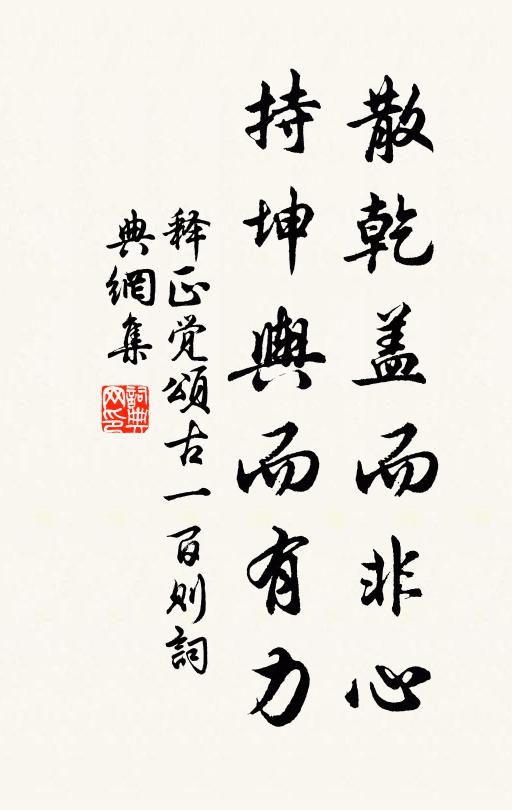 散乾盖而非心
持坤輿而有力
释正觉頌古一百则詞
典網集
詞典
网印